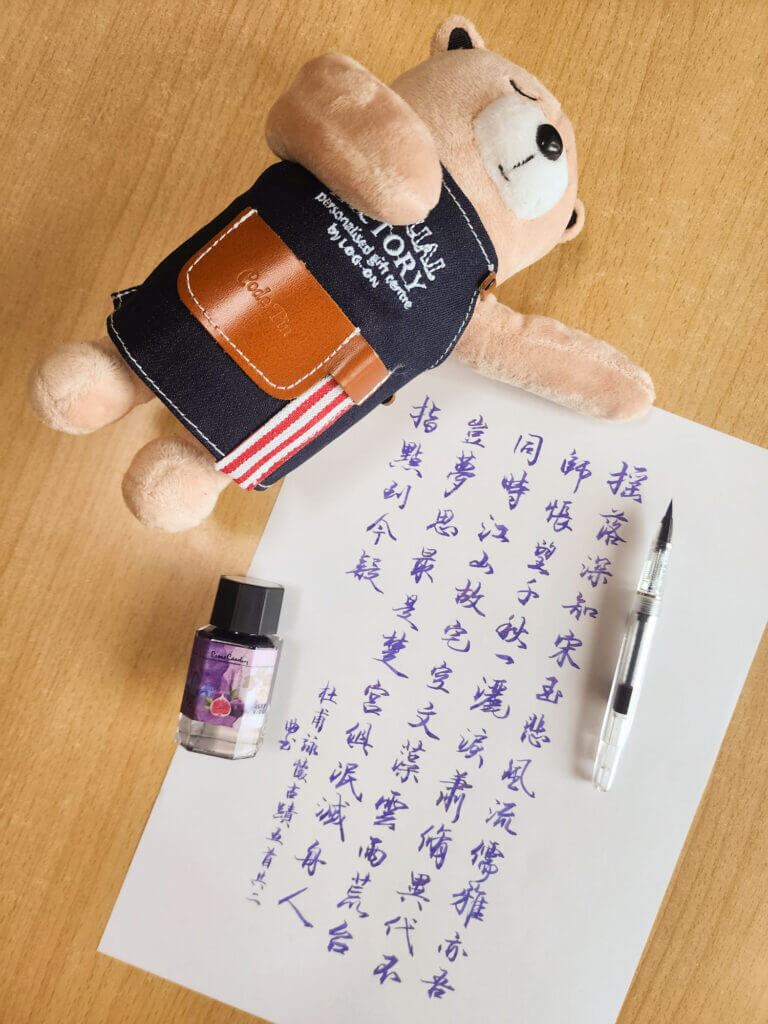 personalised gift centre
by LOG-ON
搖落深知宋玉悲風流儒雅亦吾
師悵望千秋一灑淚蕭條異代不
同時江山故宅空文藻雲雨荒台
豈夢思最是楚宮俱泯滅舟人
指點到今疑
杜甫詠懷古蹟五首其二
Pierre Cardin